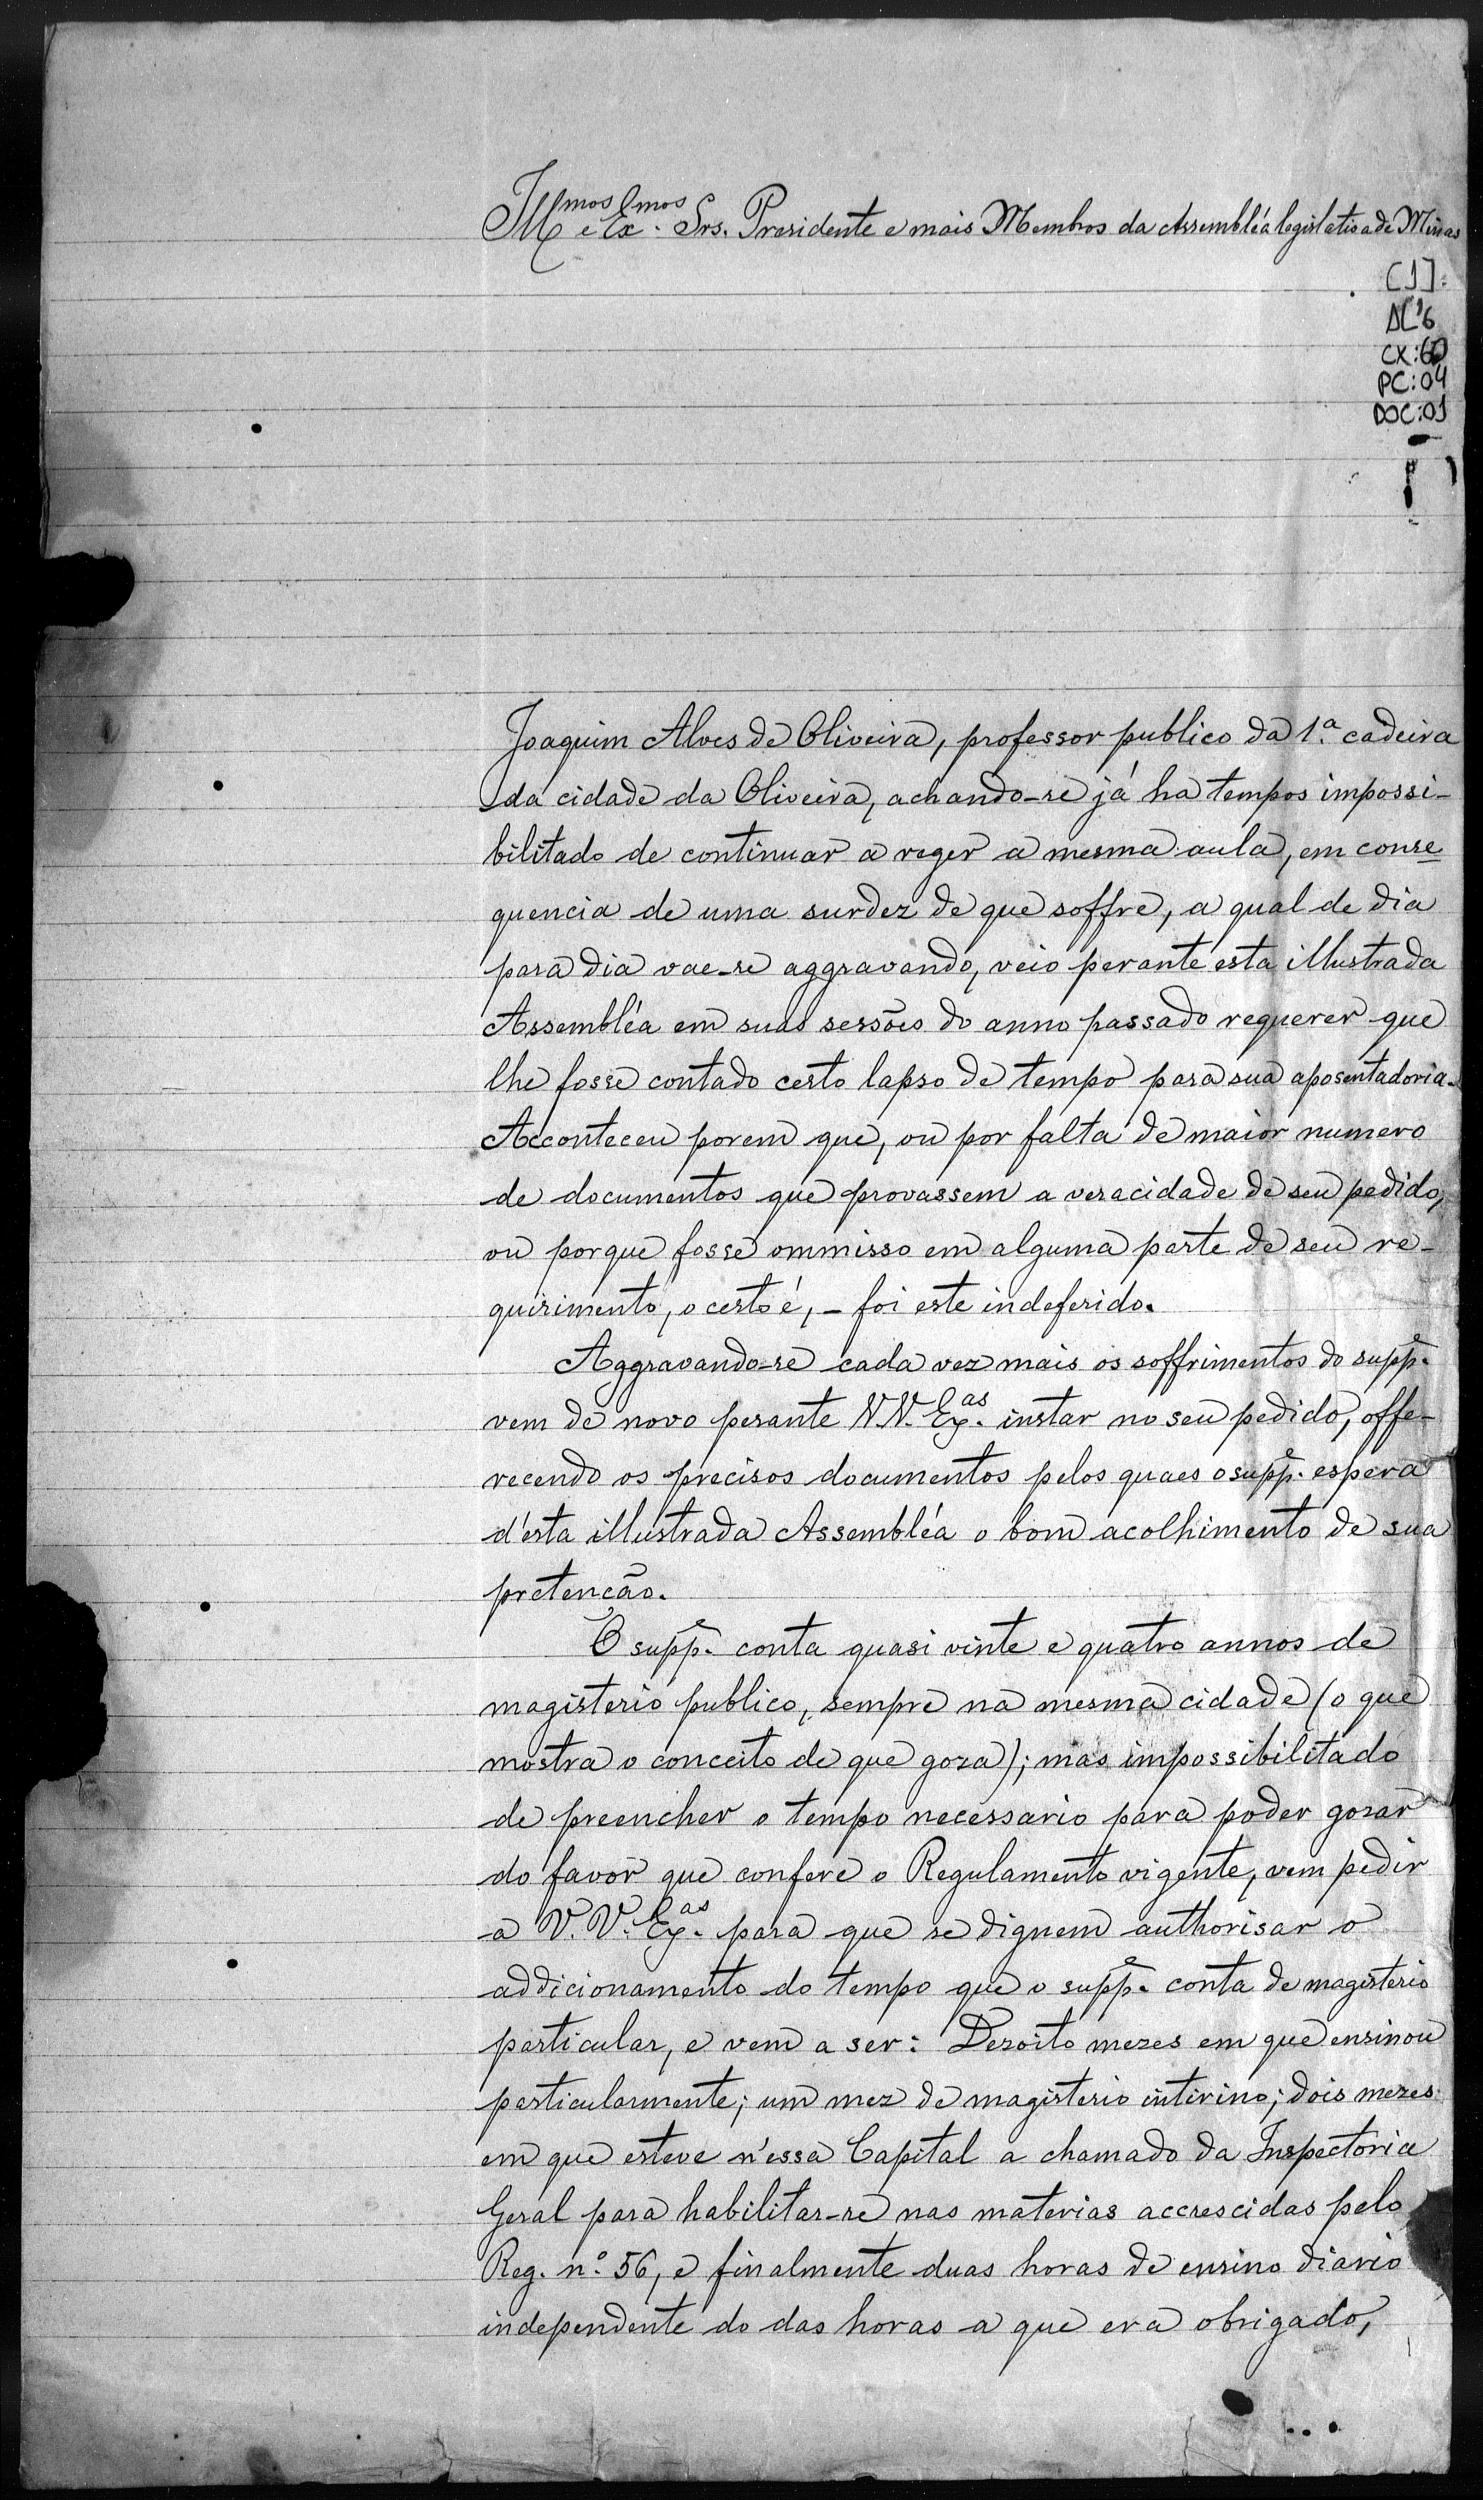 Illmos e Exmos. Srs. Presidente e mais Membros da Assembléa legislativa de Minas
[1]:
AL'6
CX:60
PC:04
DOC:01
Joaquim Alves de Oliveira, professor publico da 1.ª cadeira
da cidade da Oliveira, achando-se já ha tempos impossi-
bilitado de continuar a reger a mesma aula, em conse
quencia de uma surdez de que soffre, a qual de dia
para dia vae-se aggravando, veio perante esta illustrada
Assembléa em suas sessões do anno passado requerer que
lhe fosse contado certo lapso de tempo para sua aposentadoria.
Acconteceu porem que, ou por falta de maior numero
de documentos que provassem a veracidade de seu pedido,
ou porque fosse ommisso em alguma parte de seu re-
quirimento, o certo é, - foi este indeferido.
Aggravando-se cada vez mais os soffrimentos do suppe.
vem de novo perante V.V. Exas. instar no seu pedido, offe-
recendo os precisos documentos pelos quaes o suppe. espera
d'esta illustrada Assembléa o bom acolhimento de sua
pretenção.
O suppe. conta quasi vinte e quatro annos de
magisterio publico, sempre na mesma cidade (o que
mostra o conceito de que goza); mas impossibilitado
de preencher o tempo necessario para poder gozar
do favor que confere o Regulamento vigente, vem pedir
a V.V. Exas. para que se dignem authorisar o
addicionamento do tempo que o suppe. conta de magisterio
particular, e vem a ser: Dezoito mezes em que ensinou
particularmente; um mez de magisterio intirino; dois mezes
em que esteve n'essa Capital a chamado da Inspectoria
Geral para habilitar-se nas materias accrescidas pelo
Reg. n.º 56, e finalmente duas horas de ensino diario
independente do das horas a que era obrigado,